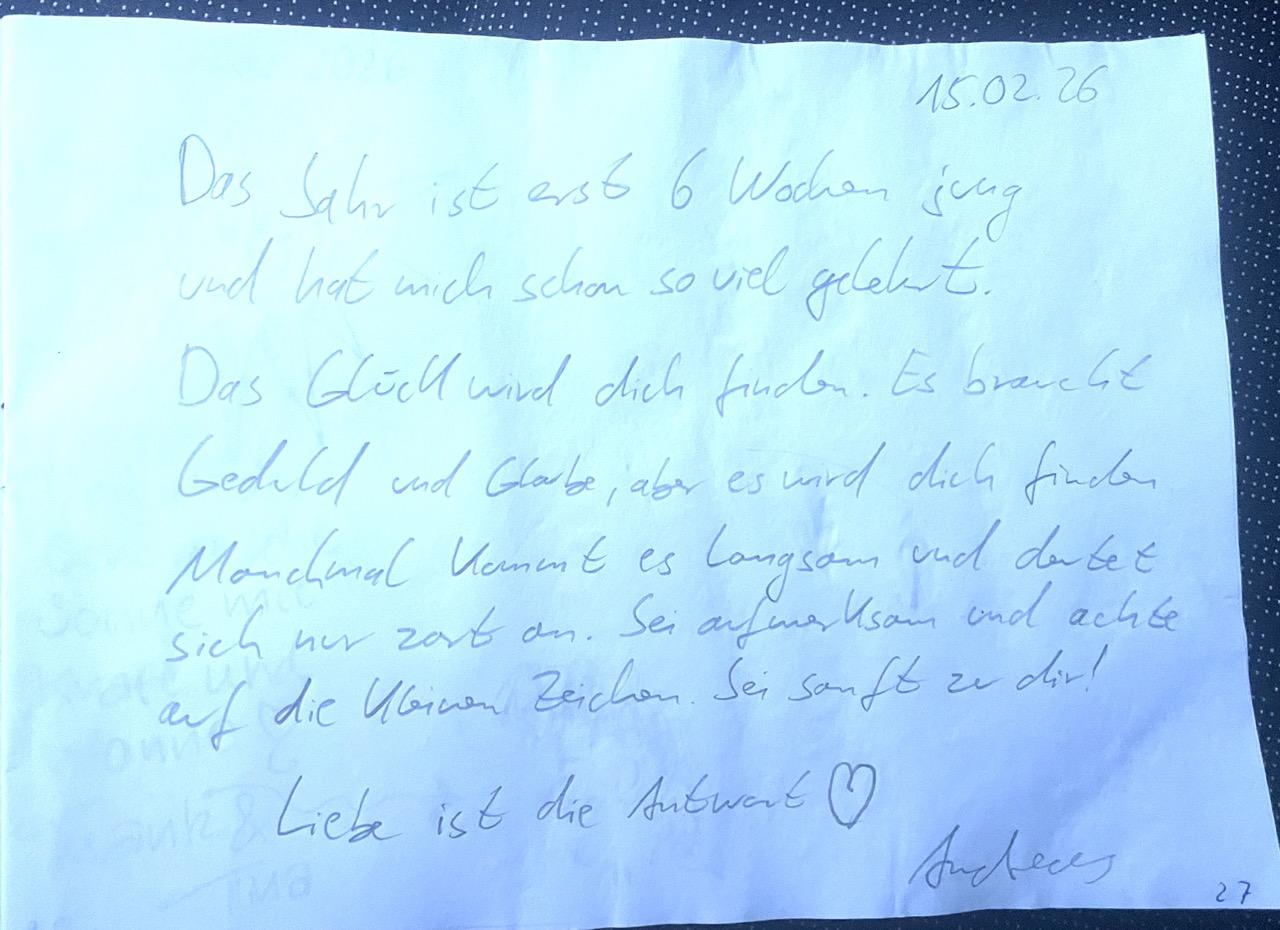 15.02.26
Das Jahr ist erst 6 Wochen jung
und hat mich schon so viel gelehrt.
Das Glück wird dich finden. Es braucht
Geduld und Glaube, aber es wird dich finden
Manchmal kommt es langsam und deutet
sich nur zart an. Sei aufmerksam und achte
auf die kleinen Zeichen. Sei sanft zu dir!
Liebe ist die Antwort ♡
Andreas
27